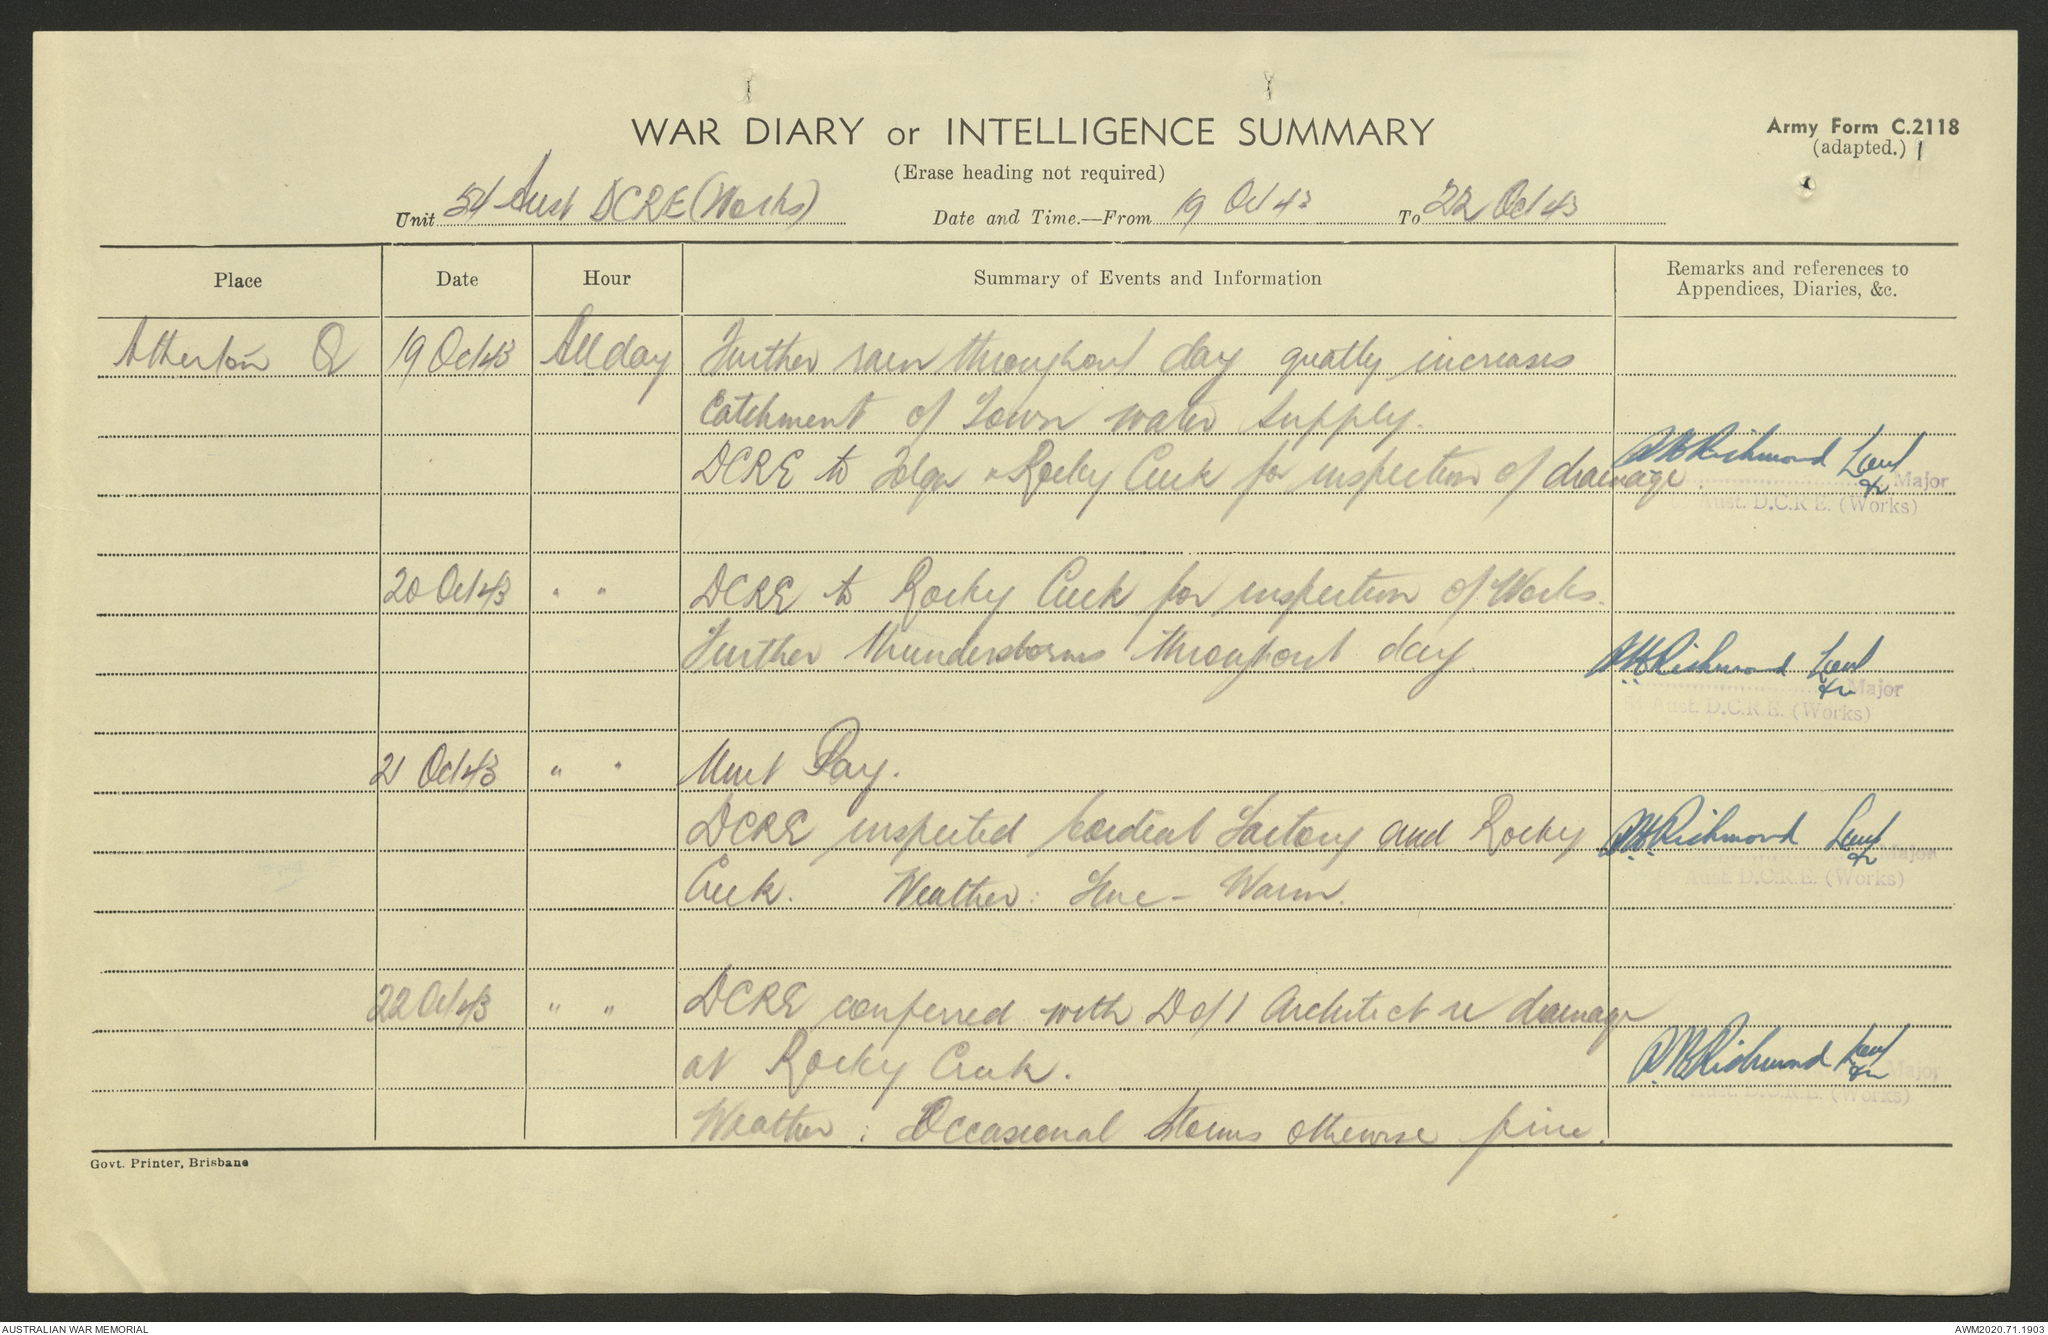 WAR DIARY or INTELLIGENCE SUMMARY
Army Form C.2118
(adapted.) 1
(Erase heading not required)
Unit 54 Aust DCRE (Works) Date and Time.—From 19 Oct 43 To 22 Oct 43
Place Date Hour Summary of Events and Information Remarks and references to
Appendices, Diaries, &c.
Atherton Q 19 Oct 43 All day Further rain throughout day greatly increases
Catchment of Town water supply.
DCRE to Tolga & Rocky Creek for inspection of drainage. Richmond Lieut
for Major
Aust. D.C.R.E. (Works)
20 Oct 43 " " DCRE to Rocky Creek for inspection of Works.
Further thunderstorms throughout day. Richmond Lieut
for Major
54 Aust. D.C.R.E. (Works)
21 Oct 43 " " Unit Pay.
DCRE inspected Cordial Factory and Rocky Richmond Lieut
for Major
Creek. Weather: Fine - Warm. Aust. D.C.R.E. (Works)
22 Oct 43 " " DCRE conferred with D of I Architect re drainage
at Rocky Creek. Richmond Lieut
for Major
Aust. D.C.R.E. (Works)
Weather: Occasional Storms otherwise fine.
Govt. Printer, Brisbane
AUSTRALIAN WAR MEMORIAL AWM2020.71.1903